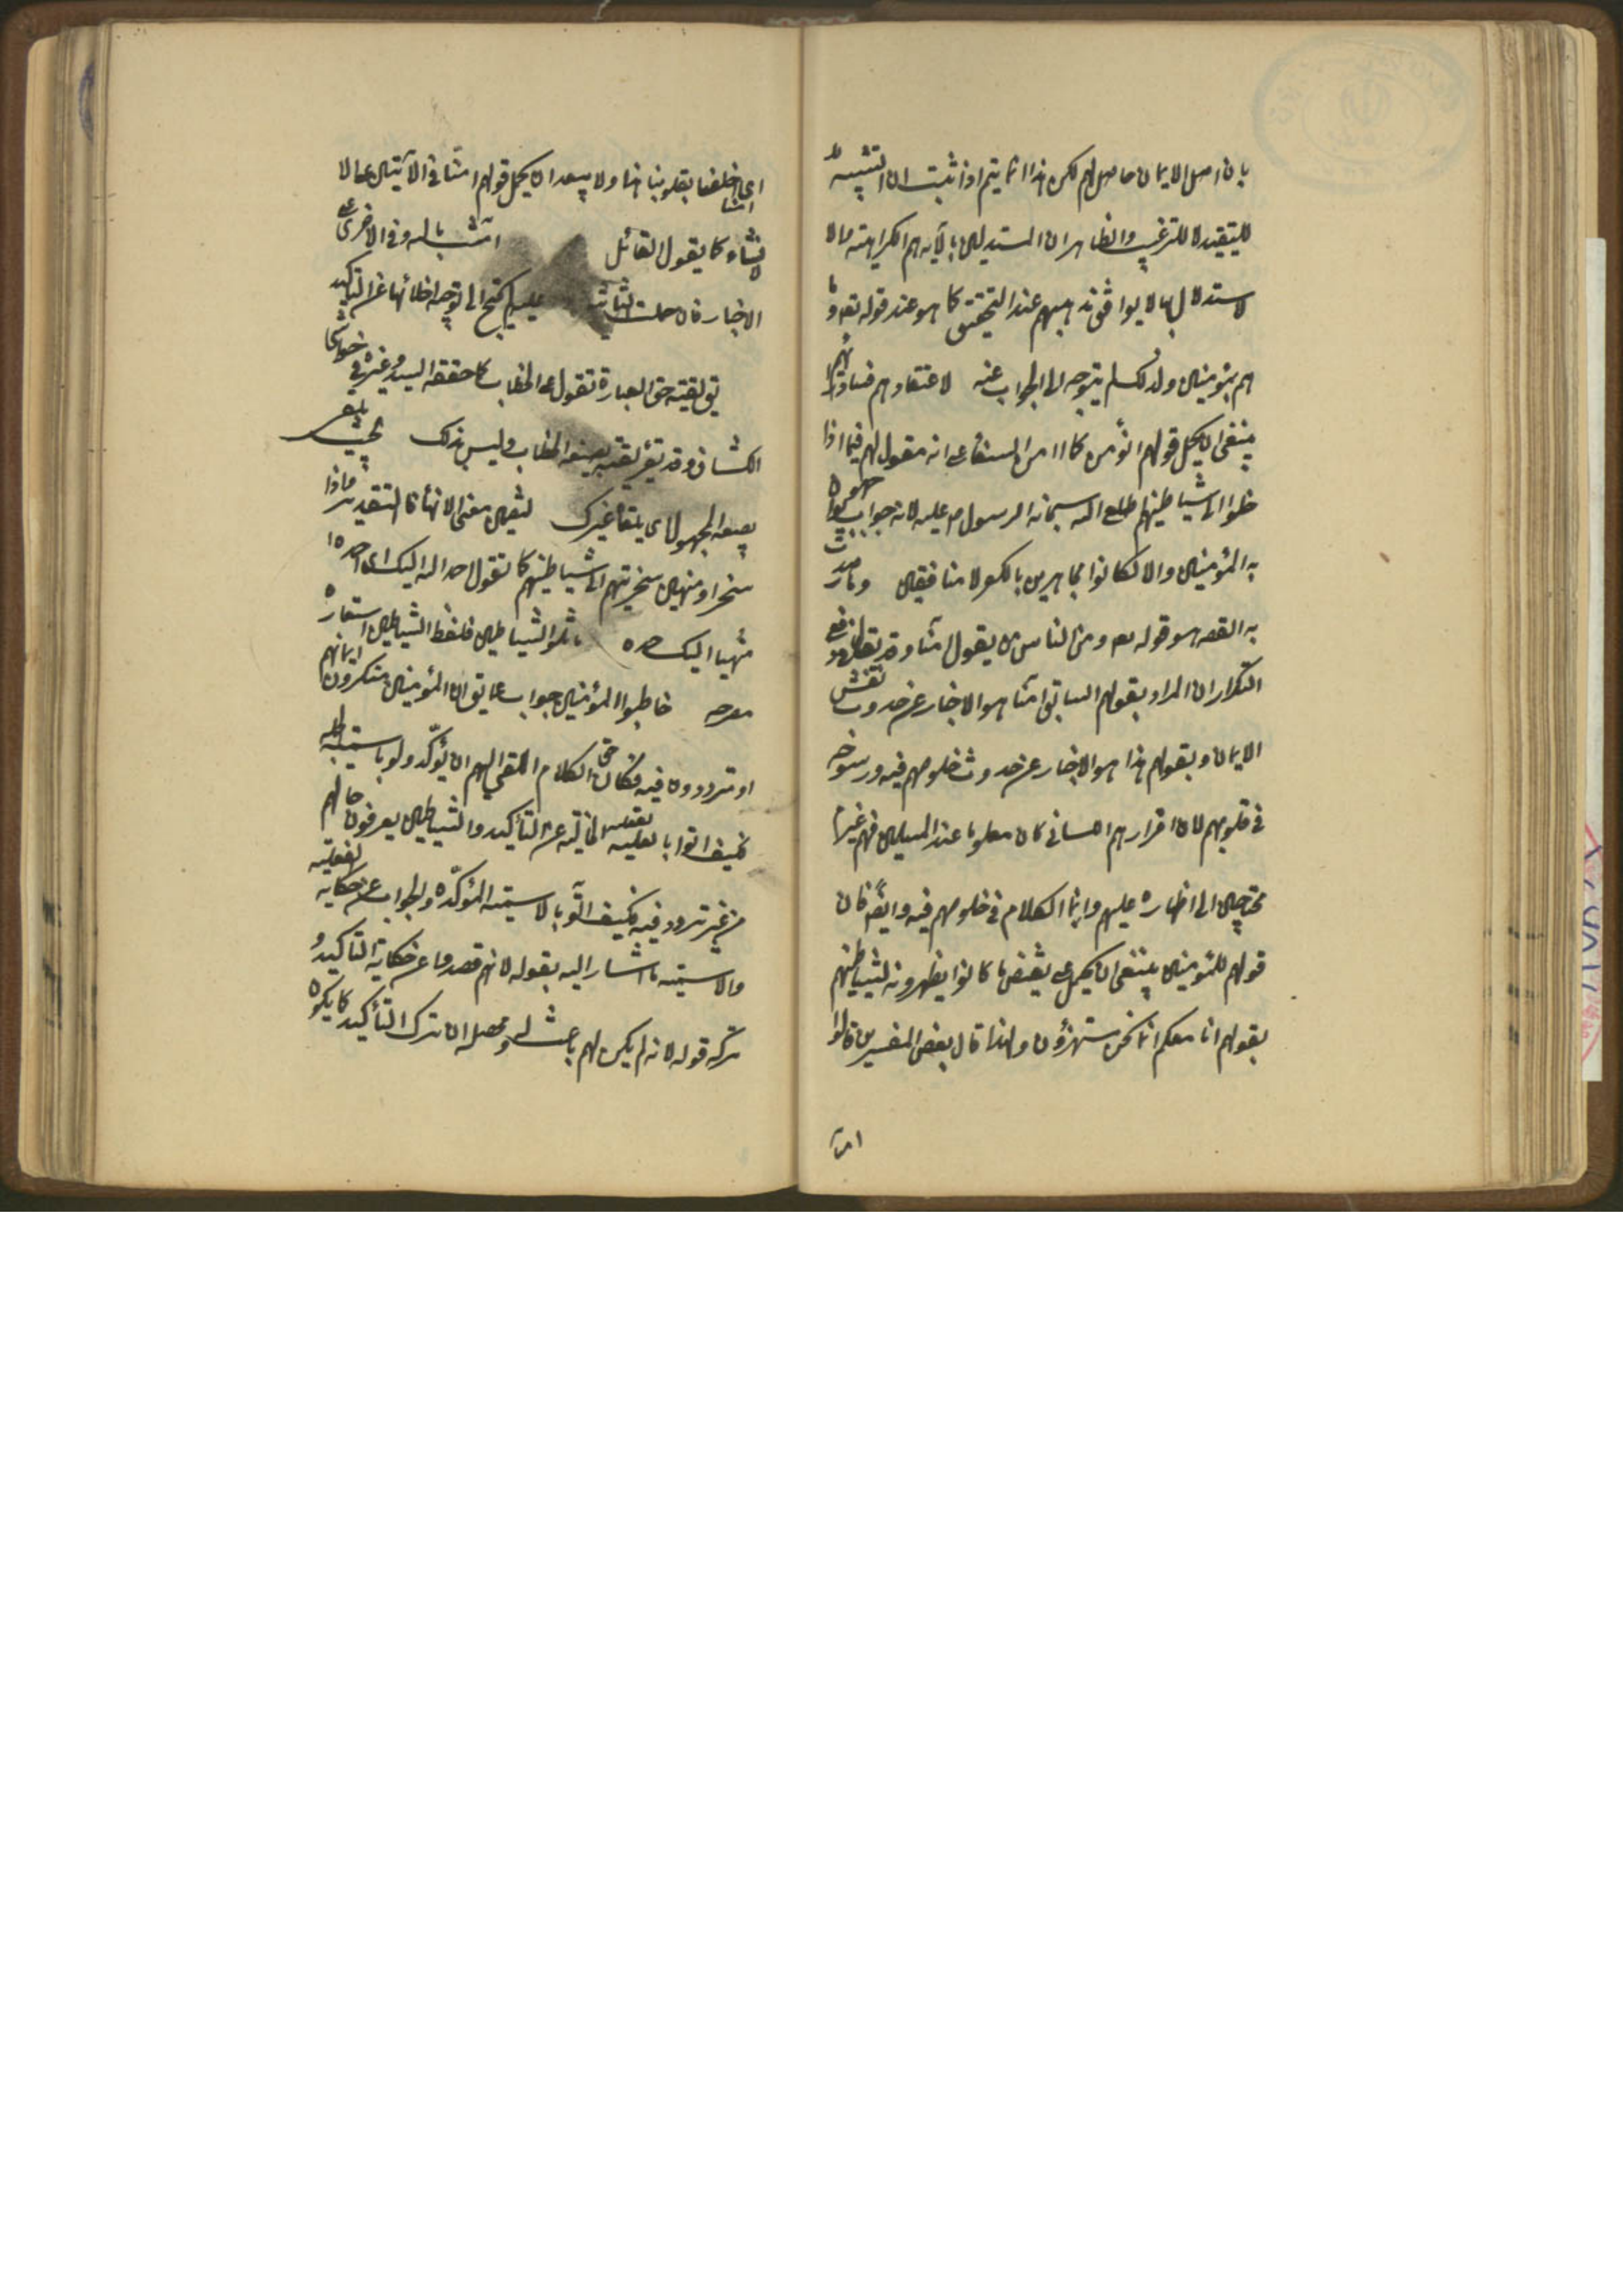 بان اصل الايمان حاصل لهم لكن هذا انما يتم اذا ثبت ان التشبيه
للتقييد لا للترغيب والظاهر ان المستدلين بالآية هم الكرامية والا
لاستدلال بها لا يوافق مذهبهم عند التحقيق كما هو عند قوله تعه وما
هم بمؤمنين ولذلك لم يتوجه الى الجواب عنه لاعتقادهم فساد
ينبغى ان يحمل قولهم انؤمن كما امن السفهاء على انه مقول لهم فيما اذا
خلوا الى شياطينهم اطلع الله سبحانه الرسول ص عليه لانه جواب
به المؤمنين والا لكانوا مجاهرين بالكفر لا منافقين وما صدرت
به القصة هو قوله تعه ومن الناس من يقول آمنا وقد يقال فى دفع
التكرار ان المراد بقولهم السابق آمنا هو الاخبار عن حدوث نفس
الايمان وبقولهم هذا هو الاخبار عن حدوث خلوصهم فيه ورسوخه
فى قلوبهم لان اقرارهم اللسانى كان معلوما عند المسلمين فهم غير
محتاجين الى اظهاره عليهم وانما الكلام فى خلوصهم فيه وايضا فان
قولهم للمؤمنين ينبغى ان يحمل على نقيض ما كانوا يظهرونه لشياطينهم
بقولهم انا معكم انما نحن مستهزؤن ولهذا قال بعض المفسرين قالوا
امنا
اى اخلصنا بقلوبنا هذا ولا يبعد ان يحمل قولهم امنا فى الآيتين على الا
نشاء كما يقول القائل امنت بالله وفى الاخرى على
الاخبار فان حملت الثانية عليه لم يحتج الى توجيه اخلائها عن التاكيد
يق لقيته حق العبارة تقول على الخطاب كما حققه السيد وغيره فى حواشى
الكشاف وقد يقرء لقيته بصيغة الخطاب وليس بذلك بحيث يلقى
بصيغة المجهول اى يلقاه غيرك لتضمين معنى الانهاء فالتقدير واذا
سخروا منهين سخريتهم الى شياطينهم كما تقول احمد الله اليك اى احمده
منهيا اليك حمده ماثلوا الشياطين فلفظ الشياطين استعارة
مصرحة خاطبوا المؤمنين جواب عما يق ان المؤمنين منكرون ايمانهم
او مترددون فيه فكان حق الكلام الملقى اليهم ان يؤكد ولو باسمية الجملة
فكيف اتوا بالفعلية الخالية عن التأكيد والشياطين يعرفون حالهم
من غير تردد فيه فكيف اتوا بالاسمية المؤكدة والجواب عن حكاية الفعلية
والاسمية ما اشار اليه بقوله لانهم قصدوا وعن حكاية التأكيد و
تركه قوله لانه لم يكن لهم باعث الخ ومحصله ان ترك التأكيد كما يكون